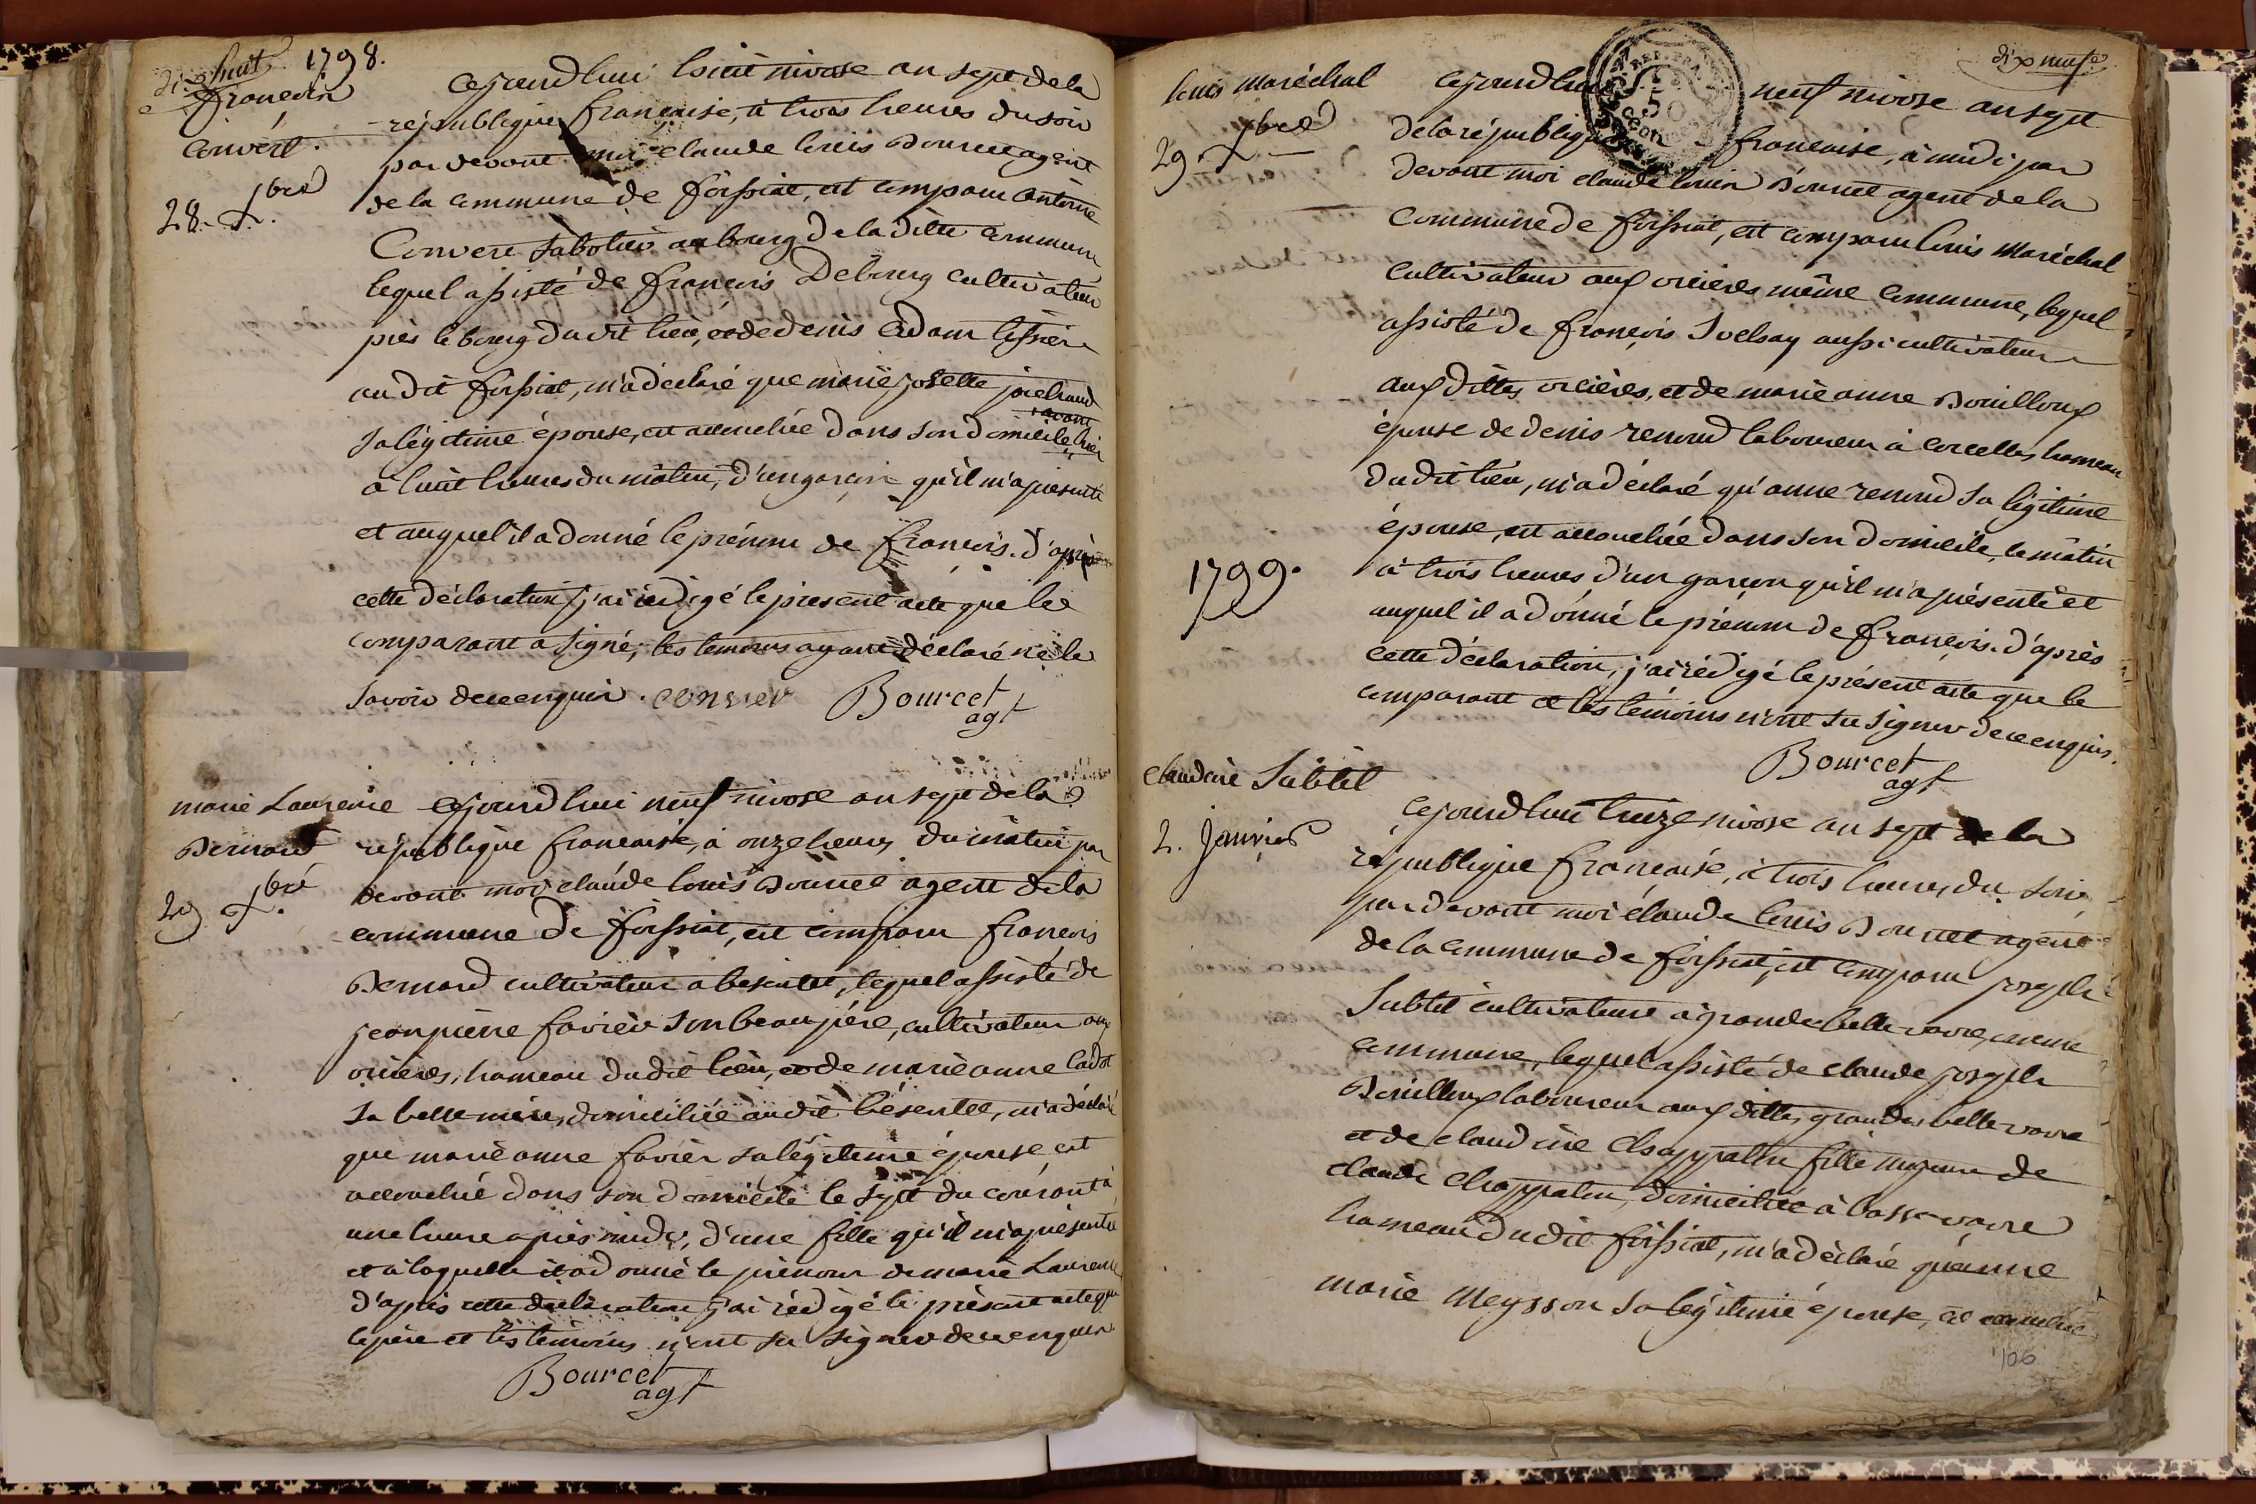 dix huit 1798.
francois
Convert.
28. xbre
Cejourd'hui huit nivose an sept de la
république française, à trois heures du soir
par devant moi claude louis Bourcet agent
de la commune de foissiat, est comparu antoine
Convert sabotier au bourg de la ditte commune
lequel assisté de francois Debourg cultivateur
près le bourg du dit lieu, et de denis Adam tissier
au dit foissiat, m'a déclaré que marie josette
sa légitime épouse, est accouchée dans son domicile avant hier
à huit heures du matin, d'un garçon qu'il m'a présenté
et auquel il a donné le prénom de francois. d'après
cette déclaration j'ai rédigé le présent acte que le
comparant a signé, les temoins ayant déclaré ne le
savoir de ce enquis. conver Bourcet
agt
marie Laurence
Bernard
29 xbre
Cejourd'hui neuf nivose an sept de la
république francaise, à onze heures du matin par
devant moi claude louis Bourcet agent de la
commune de foissiat, est comparu francois
Bernard cultivateur a besentet, lequel assisté de
jean pierre favier son beau père, cultivateur aux
orcières, hameau du dit lieu, et de marie anne
sa belle mère, domiciliée au dit besentet, m'a déclaré
que marie anne favier sa légitime épouse est
accouchée dans son domicile le sept du courant à
une heure après midy, d'une fille qu'il m'a présentée
et à laquelle il a donné le prénom de marie Laurence
d'après cette declaration j'ai rédigé le présent acte que
le père et les témoins n'ont su signer de ce enquis
Bourcet
agt
dix neuf
louis maréchal
29. xbre
Cejourd'hui neuf nivose an sept
de la république francaise, à midi par
devant moi claude louis Bourcet agent de la
Commune de foissiat, est comparu louis Maréchal
cultivateur aux orcières même commune, lequel
assisté de francois aussi cultivateur
aux dittes orcières, et de marie anne Bouilloux
épouse de denis renoud laboureur à corcelles hameau
du dit lieu, m'a déclaré qu'anne renoud sa légitime
épouse, est accouchée dans son domicile, ce matin
1799.
à trois heures d'un garcon qu'il m'a présenté et
auquel il a donné le prénom de francois. d'après
cette déclaration, j'ai rédigé le présent acte que le
comparant et les témoins n'ont su signer de ce enquis.
Bourcet
agt
claudine Subtil
2. janvier
Cejourd'hui treize nivose an sept de la
république francaise, à trois heures du soir
par devant moi claude louis Bourcet agent
de la commune de foissiat, est comparu joseph
Subtil cultivateur à grande belle vavre, même
commune, lequel assisté de claude joseph
Bouilloux laboureur aux dittes grandes belle vavre
et de claudine Chappathu fille majeure de
claude Chappathu, domiciliée à basse vavre
hameau du dit foissiat, m'a déclaré qu'anne
marie Meysson sa légitime épouse, est accouchée
106